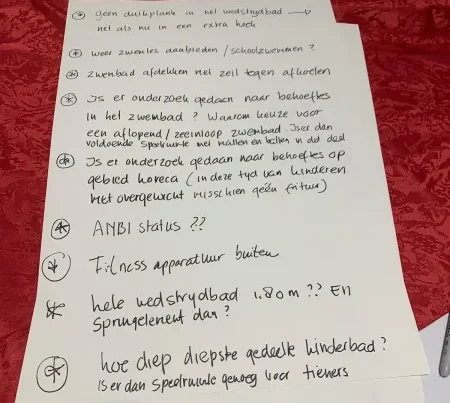 geen duikplank in het wedstrydbad →
net als nu in een extra hoek
weer zwemles aanbieden / schoolzwemmen ?
zwembad afdekken met zeil tegen afkoelen
Is er onderzoek gedaan naar behoeftes
in het zwembad ? Waarom keuze voor
een aflopend / zeeinloop zwembad. Is er dan
voldoende speelruimte met matten en ballen in dat deel
Is er onderzoek gedaan naar behoeftes op
gebied horeca ( in deze tyd van kinderen
met overgewicht misschien geen frituur)
ANBI status ??
Fitness apparatuur buiten
hele wedstrydbad 1.80 m ?? En
springelement dan ?
hoe diep diepste gedeelte kinderbad ?
is er dan speelruimte genoeg voor tieners